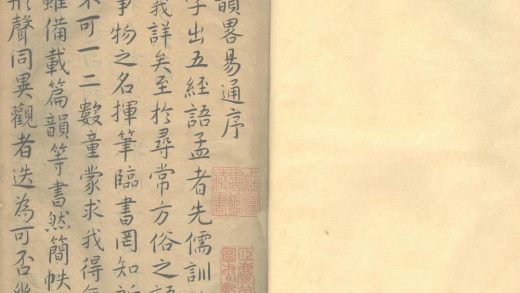 韻畧易通序
字出五經語孟者先儒訓
我詳矣至於尋常方俗之語
事物之名揮筆臨書罔知所
不可一二數童蒙求我得
雖備載篇韻等書然簡帙
形聲同異觀者迭為可否